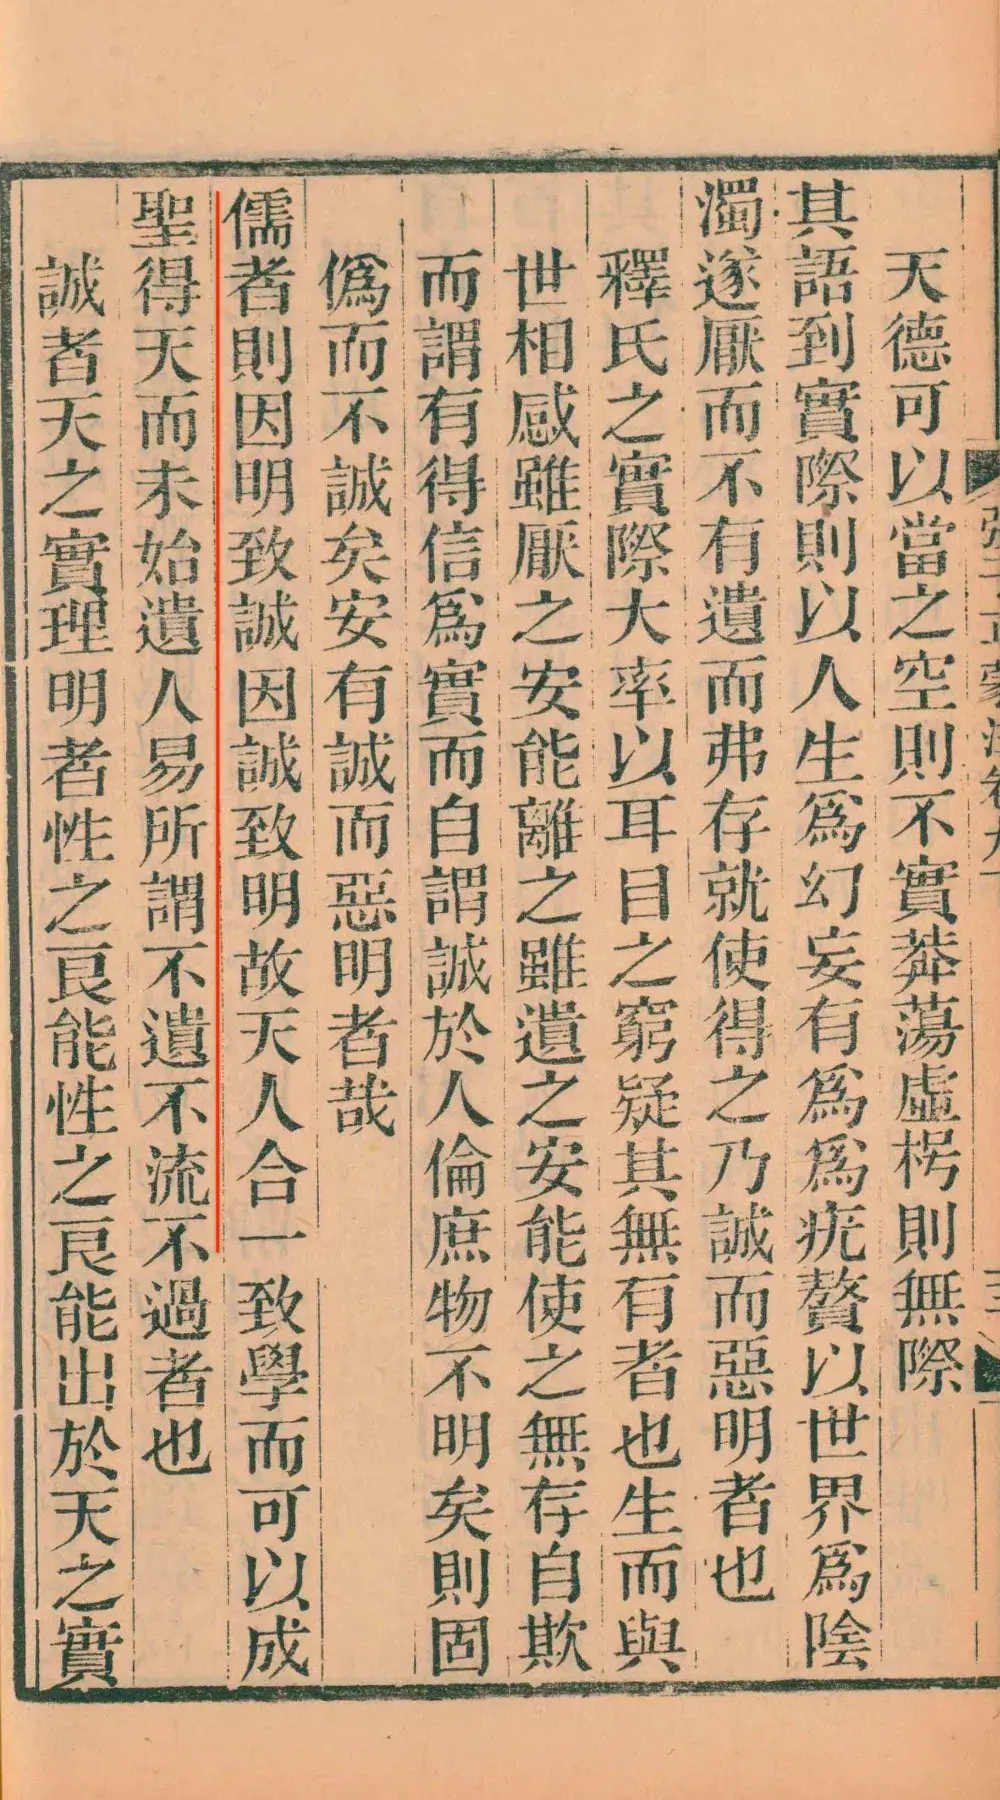 天德可以當之空則不實莽蕩虛枵則無際
其語到實際則以人生爲幻妄有爲爲疣贅以世界爲陰
濁遂厭而不有遺而弗存就使得之乃誠而惡明者也
釋氏之實際大率以耳目之窮疑其無有者也生而與
世相感雖厭之安能離之雖遺之安能使之無存自欺
而謂有得信爲實而自謂誠於人倫庶物不明矣則固
僞而不誠矣安有誠而惡明者哉
儒者則因明致誠因誠致明故天人合一致學而可以成
聖得天而未始遺人易所謂不遺不流不過者也
誠者天之實理明者性之良能性之良能出於天之實